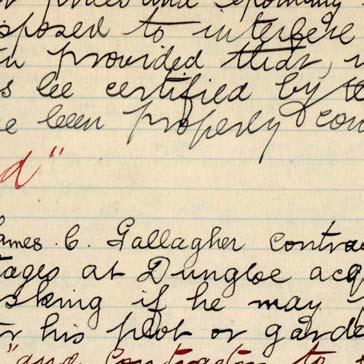 posed to interfere
provided that,
s be certified by
e been properly con
d"
ames C. Gallagher contra
tages at Dungloe acq
sking if he may
r his plot or garde
"and Contractor to